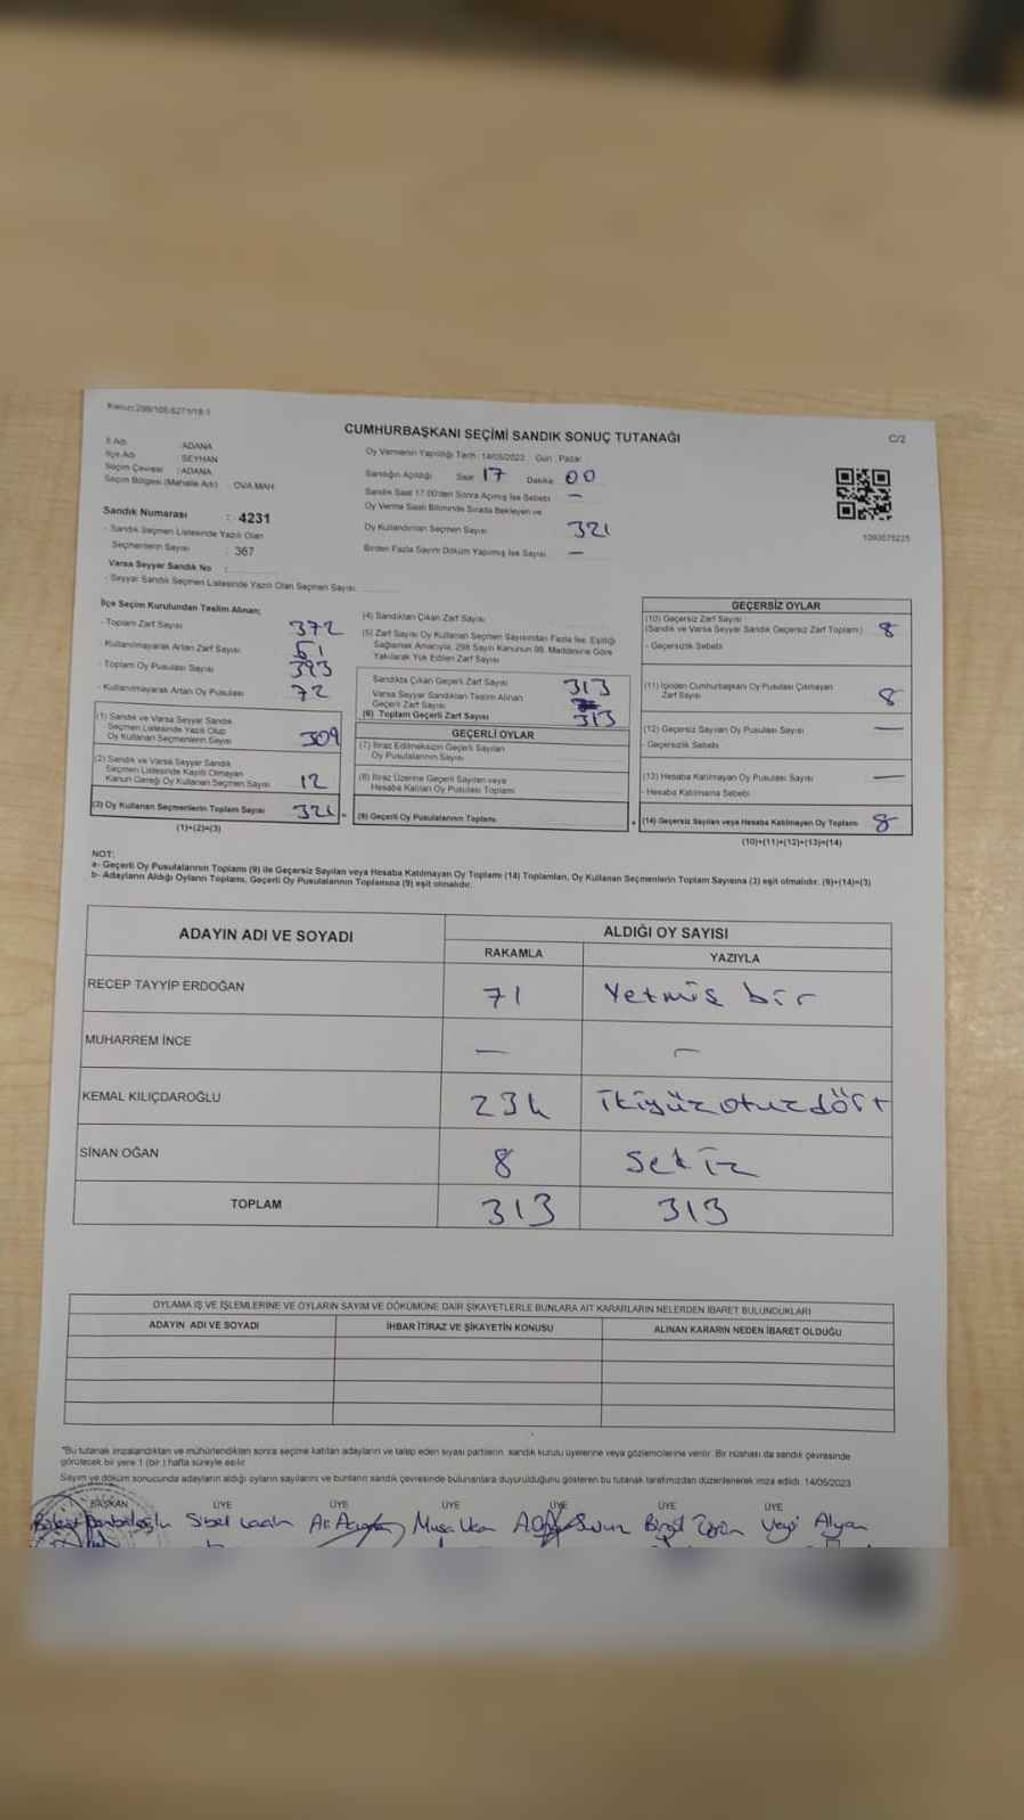 Kanun:298/105-6271/18-1
CUMHURBAŞKANI SEÇİMİ SANDIK SONUÇ TUTANAĞI
C/2
İl Adı : ADANA
İlçe Adı : SEYHAN
Seçim Çevresi : ADANA
Seçim Bölgesi (Mahalle Adı) : OVA MAH.
Sandık Numarası : 4231
- Sandık Seçmen Listesinde Yazılı Olan
Seçmenlerin Sayısı : 367
Varsa Seyyar Sandık No :
- Seyyar Sandık Seçmen Listesinde Yazılı Olan Seçmen Sayısı
Oy Vermenin Yapıldığı Tarih : 14/05/2023 Gün : Pazar
Sandığın Açıldığı Saat 17 Dakika 00
Sandık Saat 17.00'den Sonra Açılmış İse Sebebi —
Oy Verme Saati Bitiminde Sırada Bekleyen ve
Oy Kullandırılan Seçmen Sayısı 321
Birden Fazla Sayım Döküm Yapılmış İse Sayısı —
1093575225
İlçe Seçim Kurulundan Teslim Alınan;
- Toplam Zarf Sayısı 372
- Kullanılmayarak Artan Zarf Sayısı 51
- Toplam Oy Pusulası Sayısı 393
- Kullanılmayarak Artan Oy Pusulası 72
(1) Sandık ve Varsa Seyyar Sandık
Seçmen Listesinde Yazılı Olup
Oy Kullanan Seçmenlerin Sayısı 309
(2) Sandık ve Varsa Seyyar Sandık
Seçmen Listesinde Kayıtlı Olmayan
Kanun Gereği Oy Kullanan Seçmen Sayısı 12
(3) Oy Kullanan Seçmenlerin Toplam Sayısı 321
(1)+(2)=(3)
(4) Sandıktan Çıkan Zarf Sayısı
(5) Zarf Sayısı Oy Kullanan Seçmen Sayısından Fazla İse, Eşitliği
Sağlamak Amacıyla, 298 Sayılı Kanunun 98. Maddesine Göre
Yakılarak Yok Edilen Zarf Sayısı
Sandıkta Çıkan Geçerli Zarf Sayısı 313
Varsa Seyyar Sandıktan Teslim Alınan
Geçerli Zarf Sayısı
(6) Toplam Geçerli Zarf Sayısı 313
GEÇERLİ OYLAR
(7) İtiraz Edilmeksizin Geçerli Sayılan
Oy Pusulalarının Sayısı
(8) İtiraz Üzerine Geçerli Sayılan veya
Hesaba Katılan Oy Pusulası Toplamı
(9) Geçerli Oy Pusulalarının Toplamı
GEÇERSİZ OYLAR
(10) Geçersiz Zarf Sayısı
(Sandık ve Varsa Seyyar Sandık Geçersiz Zarf Toplamı) 8
- Geçersizlik Sebebi
(11) İçinden Cumhurbaşkanı Oy Pusulası Çıkmayan
Zarf Sayısı 8
(12) Geçersiz Sayılan Oy Pusulası Sayısı —
- Geçersizlik Sebebi
(13) Hesaba Katılmayan Oy Pusulası Sayısı —
- Hesaba Katılmama Sebebi
(14) Geçersiz Sayılan veya Hesaba Katılmayan Oy Toplamı 8
(10)+(11)+(12)+(13)=(14)
NOT:
a- Geçerli Oy Pusulalarının Toplamı (9) ile Geçersiz Sayılan veya Hesaba Katılmayan Oy Toplamı (14) Toplamları, Oy Kullanan Seçmenlerin Toplam Sayısına (3) eşit olmalıdır. (9)+(14)=(3)
b- Adayların Aldığı Oyların Toplamı, Geçerli Oy Pusulalarının Toplamına (9) eşit olmalıdır.
ADAYIN ADI VE SOYADI
ALDIĞI OY SAYISI
RAKAMLA YAZIYLA
RECEP TAYYİP ERDOĞAN 71 Yetmiş bir
MUHARREM İNCE — —
KEMAL KILIÇDAROĞLU 234 ikiyüzotuzdört
SİNAN OĞAN 8 Sekiz
TOPLAM 313 313
OYLAMA İŞ VE İŞLEMLERİNE VE OYLARIN SAYIM VE DÖKÜMÜNE DAİR ŞİKAYETLERLE BUNLARA AİT KARARLARIN NELERDEN İBARET BULUNDUKLARI
ADAYIN ADI VE SOYADI İHBAR İTİRAZ VE ŞİKAYETİN KONUSU ALINAN KARARIN NEDEN İBARET OLDUĞU
*Bu tutanak imzalandıktan ve mühürlendikten sonra seçime katılan adayların ve talep eden siyasi partilerin sandık kurulu üyelerine veya gözlemcilerine verilir. Bir nüshası da sandık çevresinde
görülecek bir yere 1 (bir ) hafta süreyle asılır.
Sayım ve döküm sonucunda adayların aldığı oyların sayılarını ve bunların sandık çevresinde bulunanlara duyurulduğunu gösteren bu tutanak tarafımızdan düzenlenerek imza edildi. 14/05/2023
BAŞKAN ÜYE ÜYE ÜYE ÜYE ÜYE ÜYE
Sibel Musa Veysi